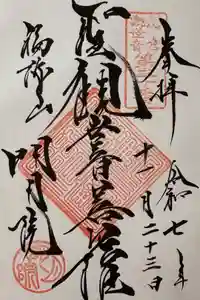 奉拝
令和七年
十一月二十三日
聖観世音菩薩
福源山
明月院